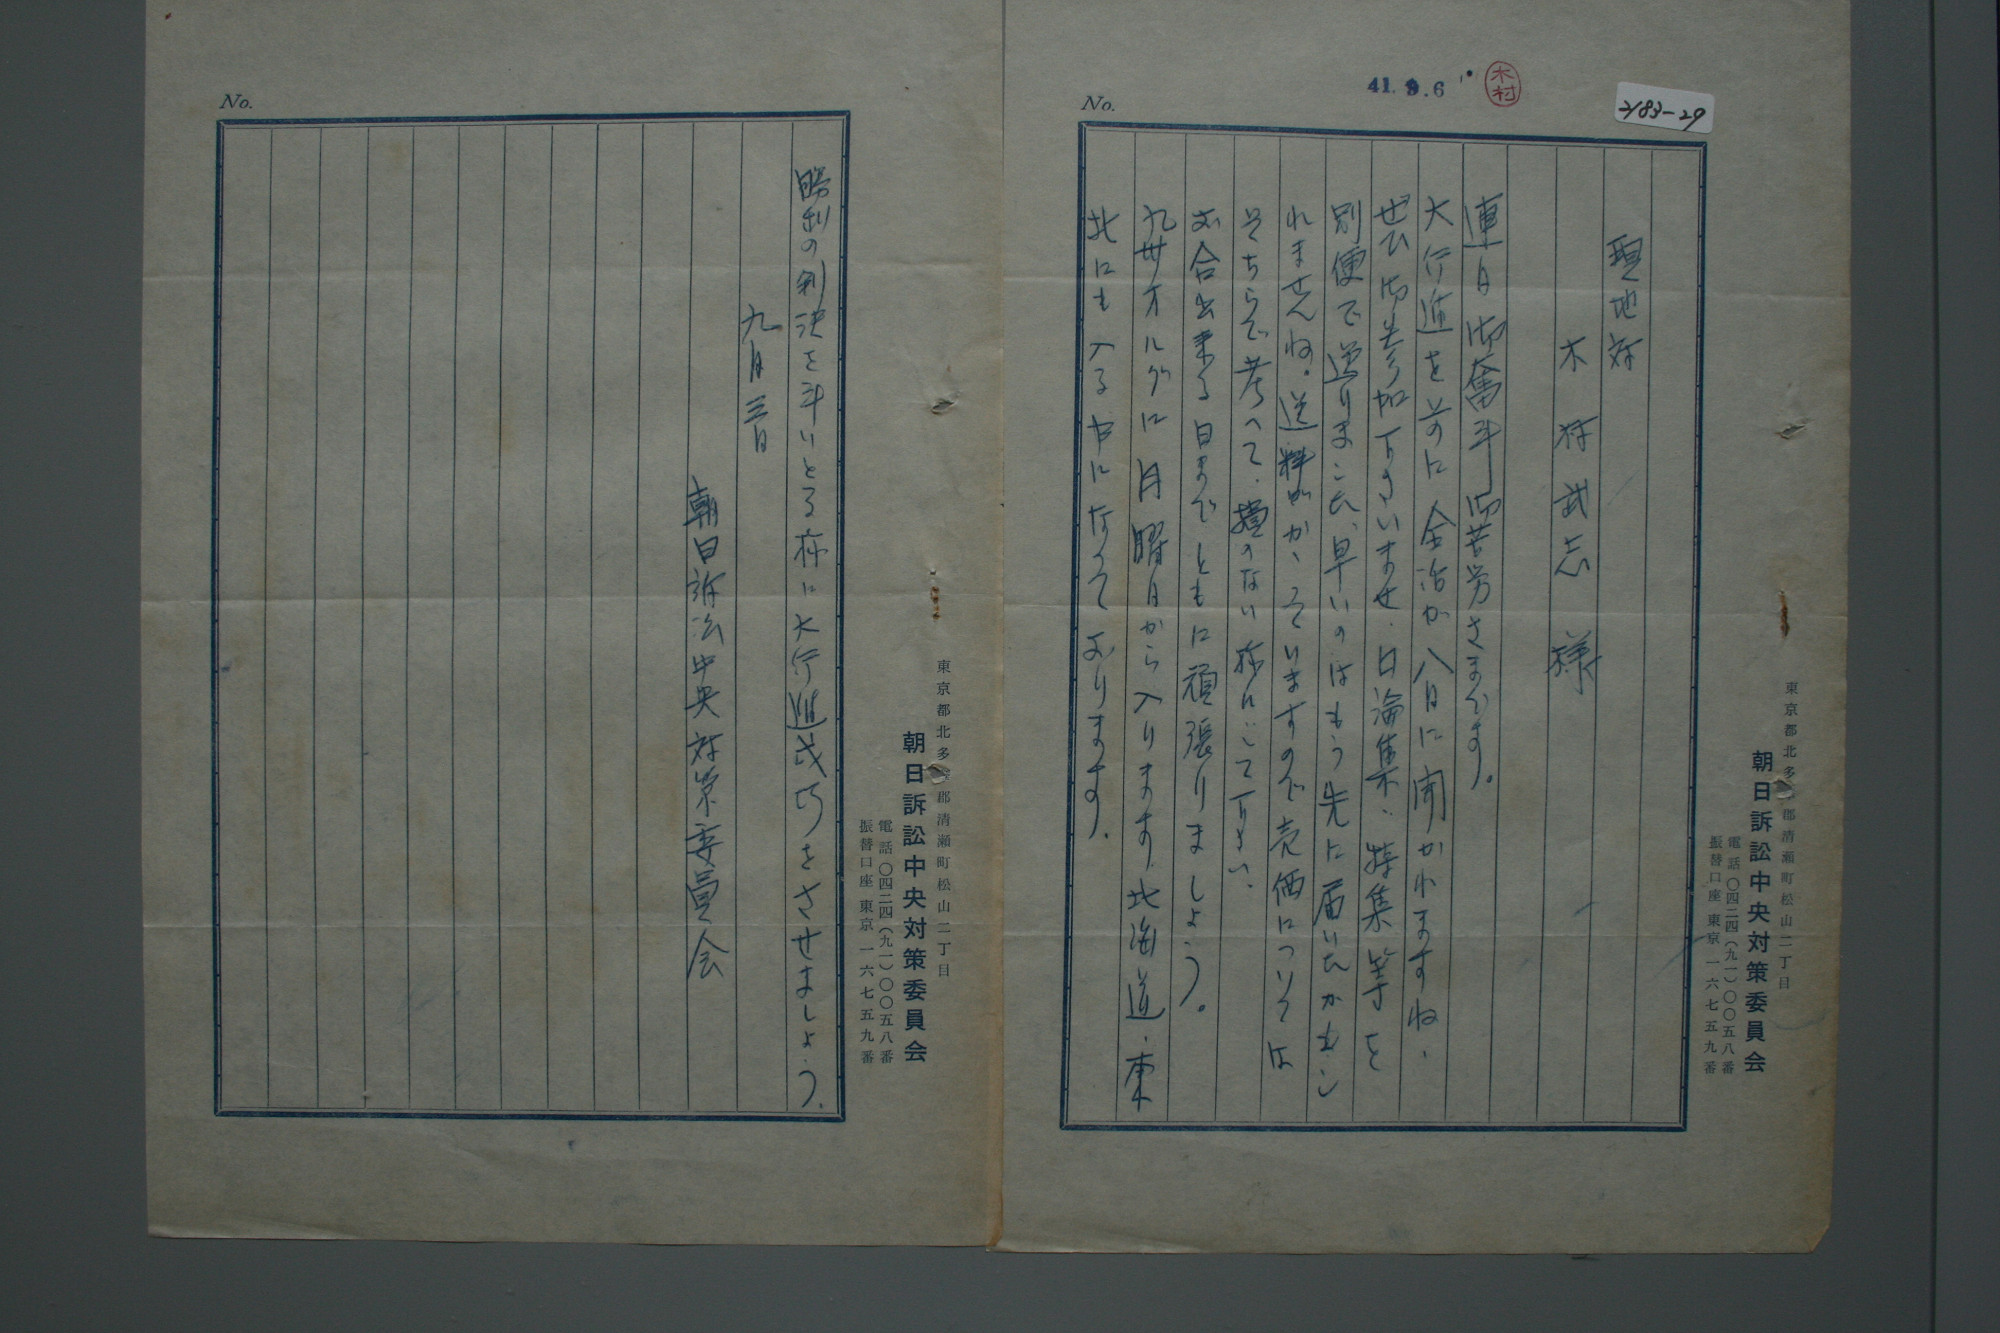 2183-29
41.9.6
木村
No.
東京都北多摩郡清瀬町松山二丁目
朝日訴訟中央対策委員会
電話〇四二四(九一)〇〇五八番
振替口座東京一六七五九番
現地対
木村武志様
連日御奮斗御苦労さまです。
大行進を前に会議が八日に開かれますね、
ぜひ御参加下さいませ、日 集、特集等を
別便で送りました、早いのはもう先に届いたかもし
れませんね。送料がかゝっていますので売価については
そちらで考へて、損のない様にして下さい、
お合出来る日までともに頑張りましょう。
九州オルグに月曜日から入ります、北海道、東
北にも入る中になっております。
No.
東京都北多 郡清瀬町松山二丁目
朝日訴訟中央対策委員会
電話〇四二四(九一)〇〇五八番
振替口座東京一六七五九番
勝利の判決を斗いとる様に大行進成巧をさせましょう.
九月三日
朝日訴訟中央対策委員会